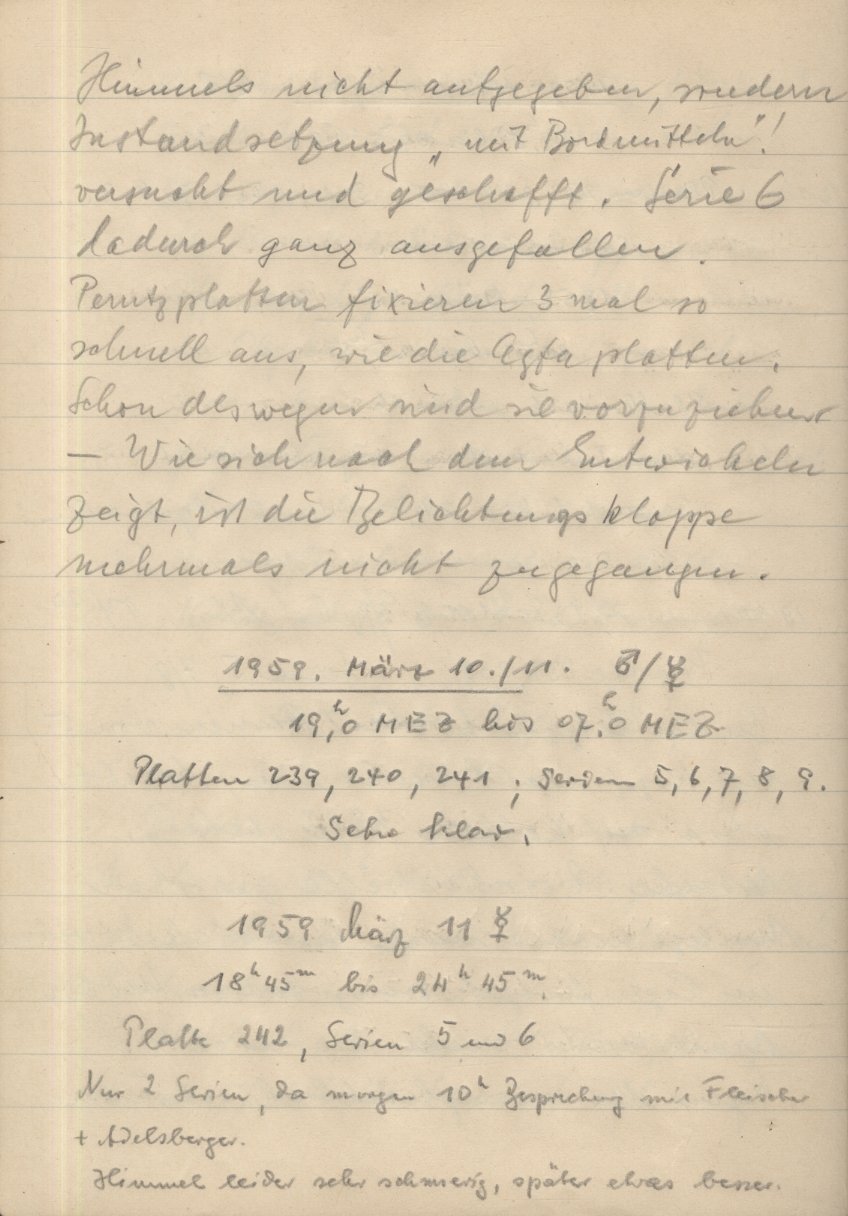 Himmels nicht aufgegeben, sondern
Instandsetzung „mit Bordmitteln"!
versucht und geschafft. Serie 6
dadurch ganz ausgefallen.
Perutzplatten fixieren 3 mal so
schnell aus, wie die Agfa platten.
Schon deswegen sind sie vorzuziehen
— Wie sich nach dem Entwickeln
zeigt, ist die Belichtungsklappe
mehrmals nicht zugegangen.
1959. März 10./11. ♂/☿
19,ʰ0 MEZ bis 07,ʰ0 MEZ
Platten 239, 240, 241; Serien 5, 6, 7, 8, 9.
Sehr klar.
1959 März 11 ☿
18ʰ45ᵐ bis 24ʰ45ᵐ.
Platte 242, Serien 5 und 6
Nur 2 Serien, da morgen 10ʰ Besprechung mit Fleischer
+ Adelsberger.
Himmel leider sehr schmierig, später etwas besser.